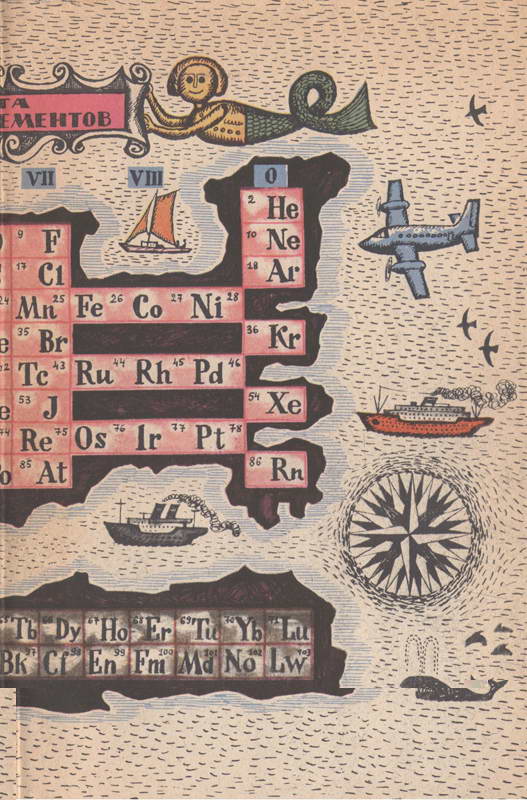 ТА
ЕМЕНТОВ
VII VIII 0
2 He
9 F 10 Ne
17 Cl 18 Ar
24 Mn 25 Fe 26 Co 27 Ni 28
e 35 Br 36 Kr
2 Tc 43 Ru 44 Rh 45 Pd 46
e 53 J 54 Xe
74 Re 75 Os 76 Ir 77 Pt 78
o 85 At 86 Rn
65 Tb 66 Dy 67 Ho 68 Er 69 Tu 70 Yb 71 Lu
Bk 97 Cf 98 En 99 Fm 100 Md 101 No 102 Lw 103